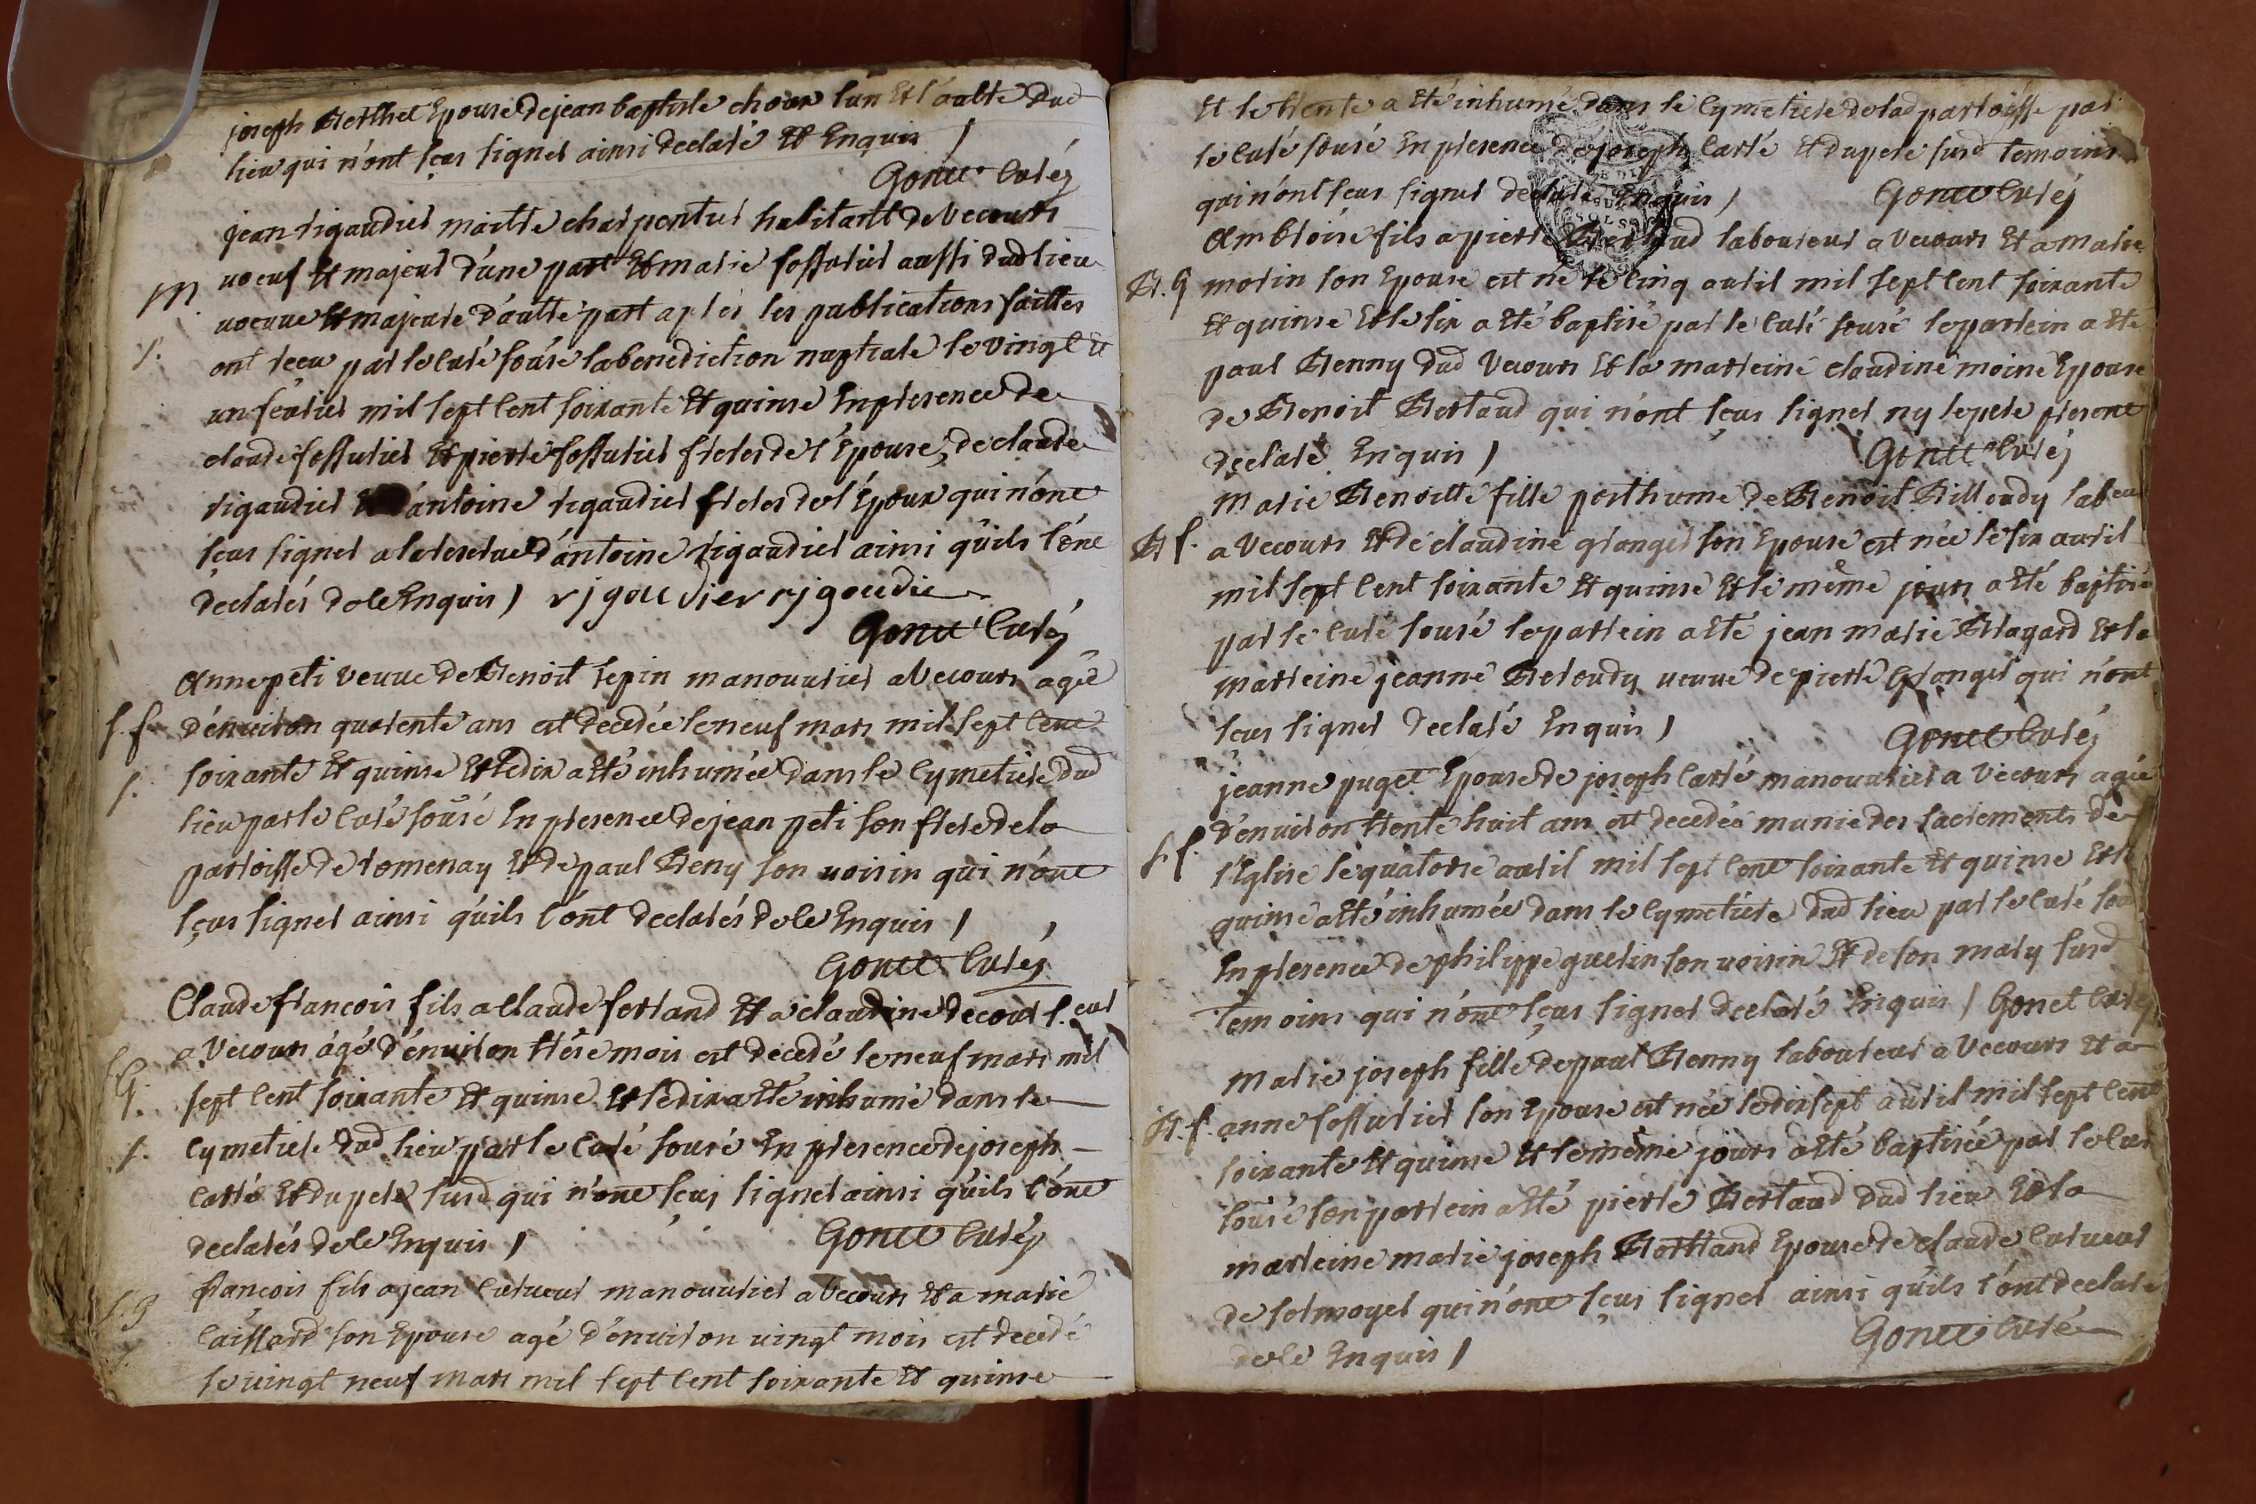 joseph Berthet Epouse de jean baptiste choux lun Et l'autre dud
lieu qui n'ont sçus signer ainsi declaré Et Enquis /
Gonet Curé
jean rigaudier maitre charpentier habitant de Vecours
M. uoeuf Et majeur d'une part Et marie fossurier aussi dud lieu
uoeuue Et majeure d'autre part apres les publications faittes
s. ont receu par le curé sousé la benediction nuptiale le vingt Et
un feurier mil sept cent soixante Et quinse En presence de
claude fossurier Et pierre fossurier freres de l'Epouse, de claude
rigaudier Et d'antoine rigaudier freres de l'Epoux qui n'ont
sçus signer a la reserue d'antoine rigaudier ainsi qu'ils l'ont
declarés de ce Enquis / rjgoudier rjgoudie
Gonet Curé
Anne peti veuue de Benoit sepin manouurier a Vecours agée
s. f. d'enuiron quarente ans est decedée le neuf mars mil sept cent
soixante Et quinse Et le dix a Eté inhumée dans le Cymetiere dud
s. lieu par le curé sousé En presence de jean peti son frere de la
parroisse de romenay Et de paul Beny son uoisin qui n'ont
sçus signer ainsi qu'ils l'ont declarés de ce Enquis /
Gonet Curé
Claude francois fils a Claude ferrand Et a claudine decour l.eur
a Vecours agé d'enuiron trese mois est decedé le neuf mars mil
s. G. sept cent soixante Et quinse Et le dix a Eté inhumé dans le
s. cymetiere dud lieu par le Curé sousé En presence de joseph
carré Et du pere susd qui n'ont sçus signer ainsi qu'ils l'ont
declarés de ce Enquis /
Gonet Curé
s. g francois fils a jean Curueur manouurier a Vecours Et a marie
caissard son Epouse agé d'enuiron uingt mois est decedé
le uingt neuf mars mil sept cent soixante Et quinse
Et le trente a Eté inhumé dans le Cymetiere de lad parroisse par
le Curé sousé En presence de joseph Carré Et du pere susd temoins
qui n'ont sçus signer declaré Enquis /
Gonet Curé
Ambroise fils a pierre Bertaud laboureur a Vecours Et a marie
B. g morin son Epouse est né le cinq auril mil sept cent soixante
Et quinse Et le six a Eté baptisé par le Curé sousé le parrein a Eté
paul Benny dud Vecours Et la marreine claudine moine Epouse
de Benoit Bertaud qui n'ont sçus signer ny le pere present
declaré Enquis /
Gonet Curé
Marie Benoitte fille posthume de Benoit Billoudy labeur
B. f. a Vecours Et de claudine granger son Epouse est née le six auril
mil sept cent soixante Et quinse Et le même jours a Eté baptisé
par le Curé sousé le parrein a Eté jean marie Blagard Et la
marreine jeanne Beroudy ueuue de pierre Granger qui n'ont
sçus signer declaré Enquis /
Gonet Curé
jeanne puget Epouse de joseph Carré manouurier a Vecours agée
d'enuiron trente huit ans est decedée munie des sacrements de
s. f. l'Eglise le quatorse auril mil sept cent soixante Et quinse Et le
quinse a Eté inhumée dans le Cymetiere dud lieu par le Curé sousd
En presence de philippe guerin son uoisin Et de son mary susd
Temoins qui n'ont sçus signer declaré Enquis / Gonet Curé
Marie joseph fille de paul Benny laboureur a Vecours Et a
B. f. anne fossurier son Epouse est née le dix sept auril mil sept cent
soixante Et quinse Et le même jours a Eté baptisée par le Curé
sousé son parrein a Eté pierre Bertaud dud lieu Et la
marreine marie joseph Borttand Epouse de claude Curueur
de sermoyer qui n'ont sçus signer ainsi qu'ils l'ont declaré
de ce Enquis /
Gonet Curé